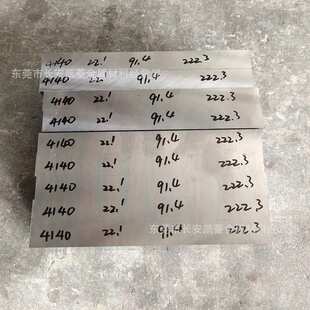 4140 22.1 91.4 222.3
4140 22. 91.4 222.3
4140 22.1 91.4 222.3
4140 22.1 91.4 222.3
4140 22.1 91.4 222.3
4140 22.1 91.4 222.3
4140 22.1 91.4 222.3
4140 22.1 91.4 222.3
4140 22.1 91.4 222.3